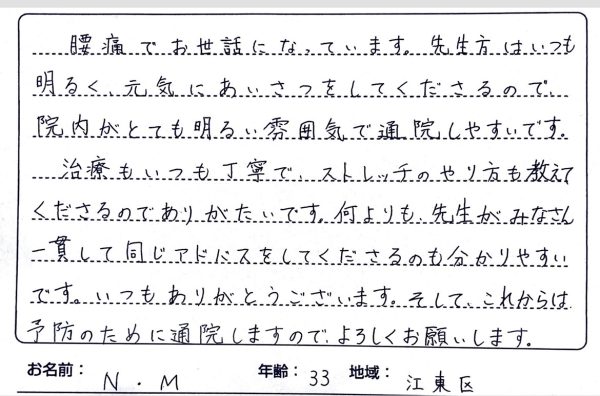 腰痛でお世話になっています。先生方はいつも
明るく、元気にあいさつをしてくださるので、
院内がとても明るい雰囲気で通院しやすいです。
治療もいつも丁寧で、ストレッチのやり方も教えて
くださるのでありがたいです。何よりも、先生がみなさん
一貫して同じアドバスをしてくださるのも分かりやすい
です。いつもありがとうございます。そして、これからは
予防のために通院しますので、よろしくお願いします。
お名前： N．M 年齢： 33 地域： 江東区